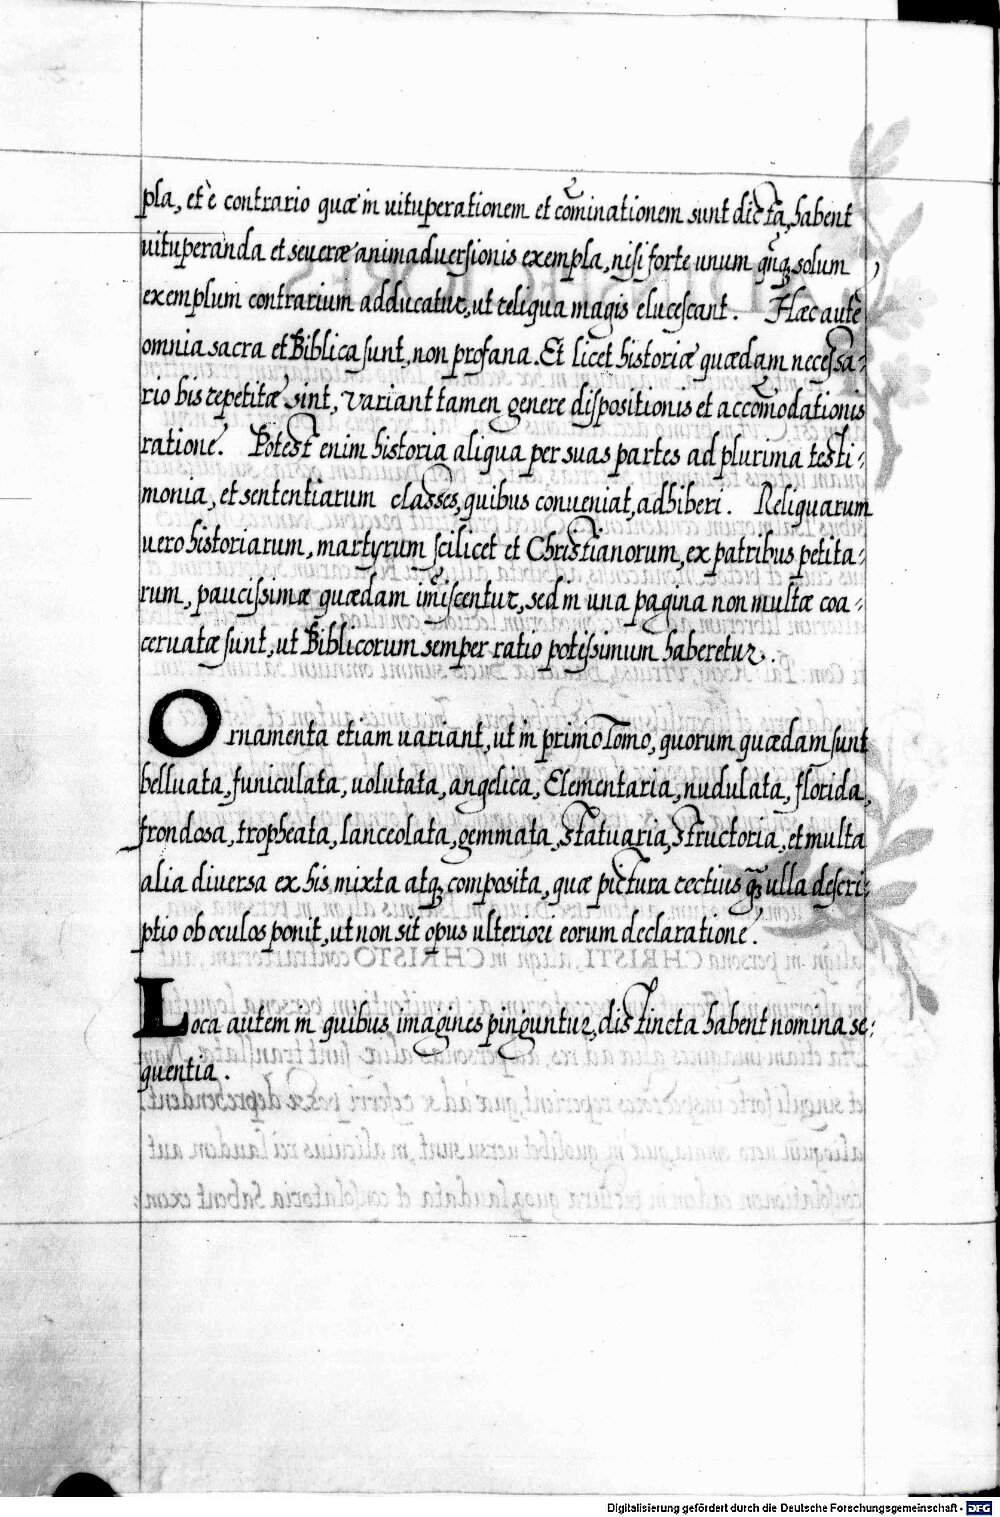 pla, et è contrario quæ in uituperationem et cōminationem sunt dicta, habent
uituperanda et seueræ animaduersionis exempla, nisi forte unum solum
exemplum contrarium adducatur, ut reliqua magis elucescant. Hæc autē
omnia sacra et Biblica sunt, non profana. Et licet historiæ quædam necessa-
rio bis repetitæ sint, variant tamen genere dispositionis et accōmodationis
ratione. Potest enim historia aliqua per suas partes ad plurima testi-
monia, et sententiarum classes, quibus conueniat, adhiberi. Reliquarum
uero historiarum, martyrum scilicet et Christianorum, ex patribus petita-
rum, paucissimæ quædam im̄iscentur, sed in una pagina non multæ coa-
ceruatæ sunt, ut Biblicorum semper ratio potissimum haberetur.
Ornamenta etiam uariant, ut in primo Tomo, quorum quædam sunt
belluata, funiculata, uolutata, angelica, Elementaria, nudulata, florida,
frondosa, tropheata, lanceolata, gemmata, statuaria, structoria, et multa
alia diuersa ex his mixta atq3 composita, quæ pictura rectius q̄3 ulla descri-
ptio ob oculos ponit, ut non sit opus ulteriori eorum declaratione.
Loca autem in quibus imagines pinguntur, distincta habent nomina se-
quentia.
Digitalisierung gefördert durch die Deutsche Forschungsgemeinschaft - DFG